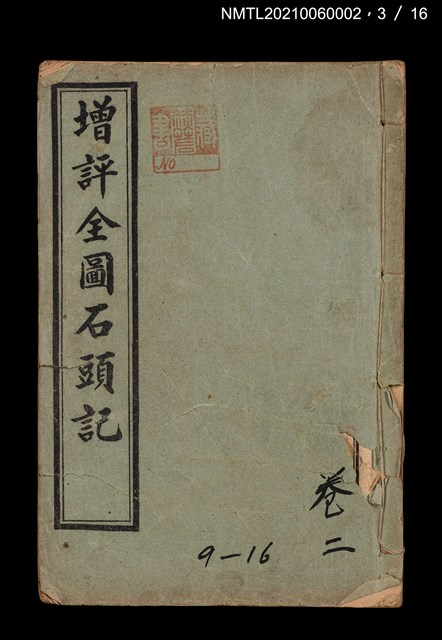 NMTL20210060002，3 / 16
增評全圖石頭記
No
卷二
9－16